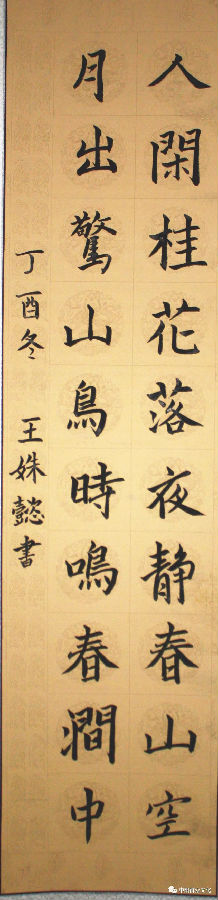 人閑桂花落夜静春山空
月出驚山鳥時鳴春澗中
丁酉冬 王姝懿書